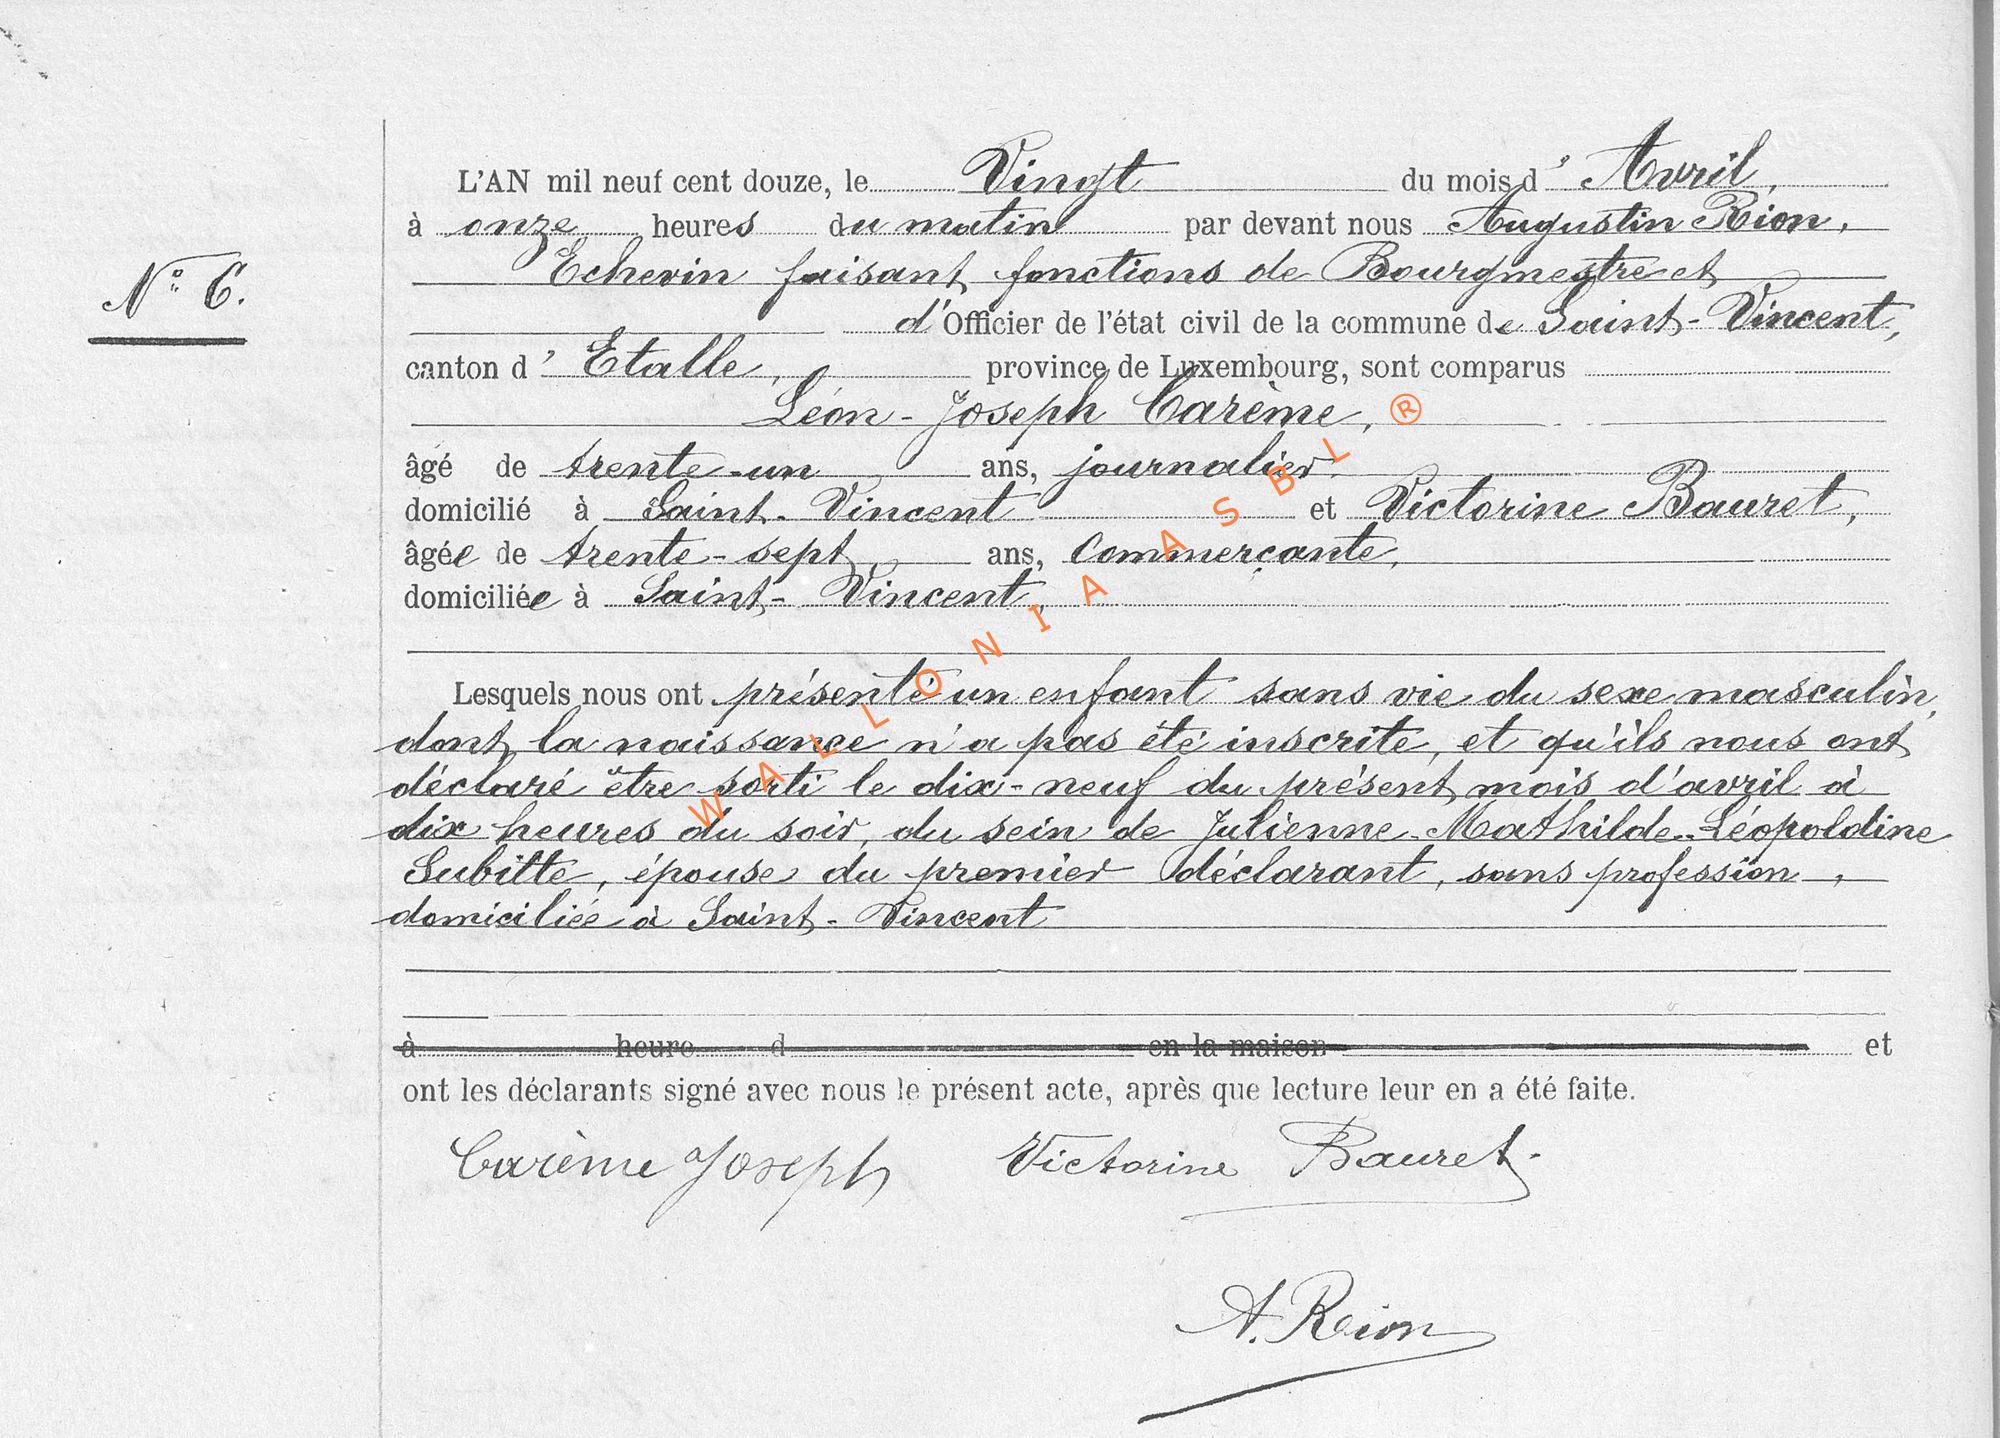 L'AN mil neuf cent douze, le Vingt du mois d' Avril,
à onze heures du matin par devant nous Augustin Rion,
N° 6.
Echevin faisant fonctions de Bourgmestre et
d'Officier de l'état civil de la commune de Saint-Vincent,
canton d' Etalle, province de Luxembourg, sont comparus
Léon-Joseph Carème,
âgé de trente-un ans, journalier
domicilié à Saint-Vincent et Victorine Bauret,
âgée de trente-sept ans, Commerçante,
domiciliée à Saint-Vincent,
Lesquels nous ont présenté un enfant sans vie du sexe masculin,
dont la naissance n'a pas été inscrite, et qu'ils nous ont
déclaré être sorti le dix-neuf du présent mois d'avril à
dix heures du soir, du sein de Julienne-Mathilde-Léopoldine
Subitte, épouse du premier déclarant, sans profession,
domiciliée à Saint-Vincent
à heure d en la maison et
ont les déclarants signé avec nous le présent acte, après que lecture leur en a été faite.
Carème Joseph Victorine Bauret.
A. Rion
WALLONIA ASBL ®